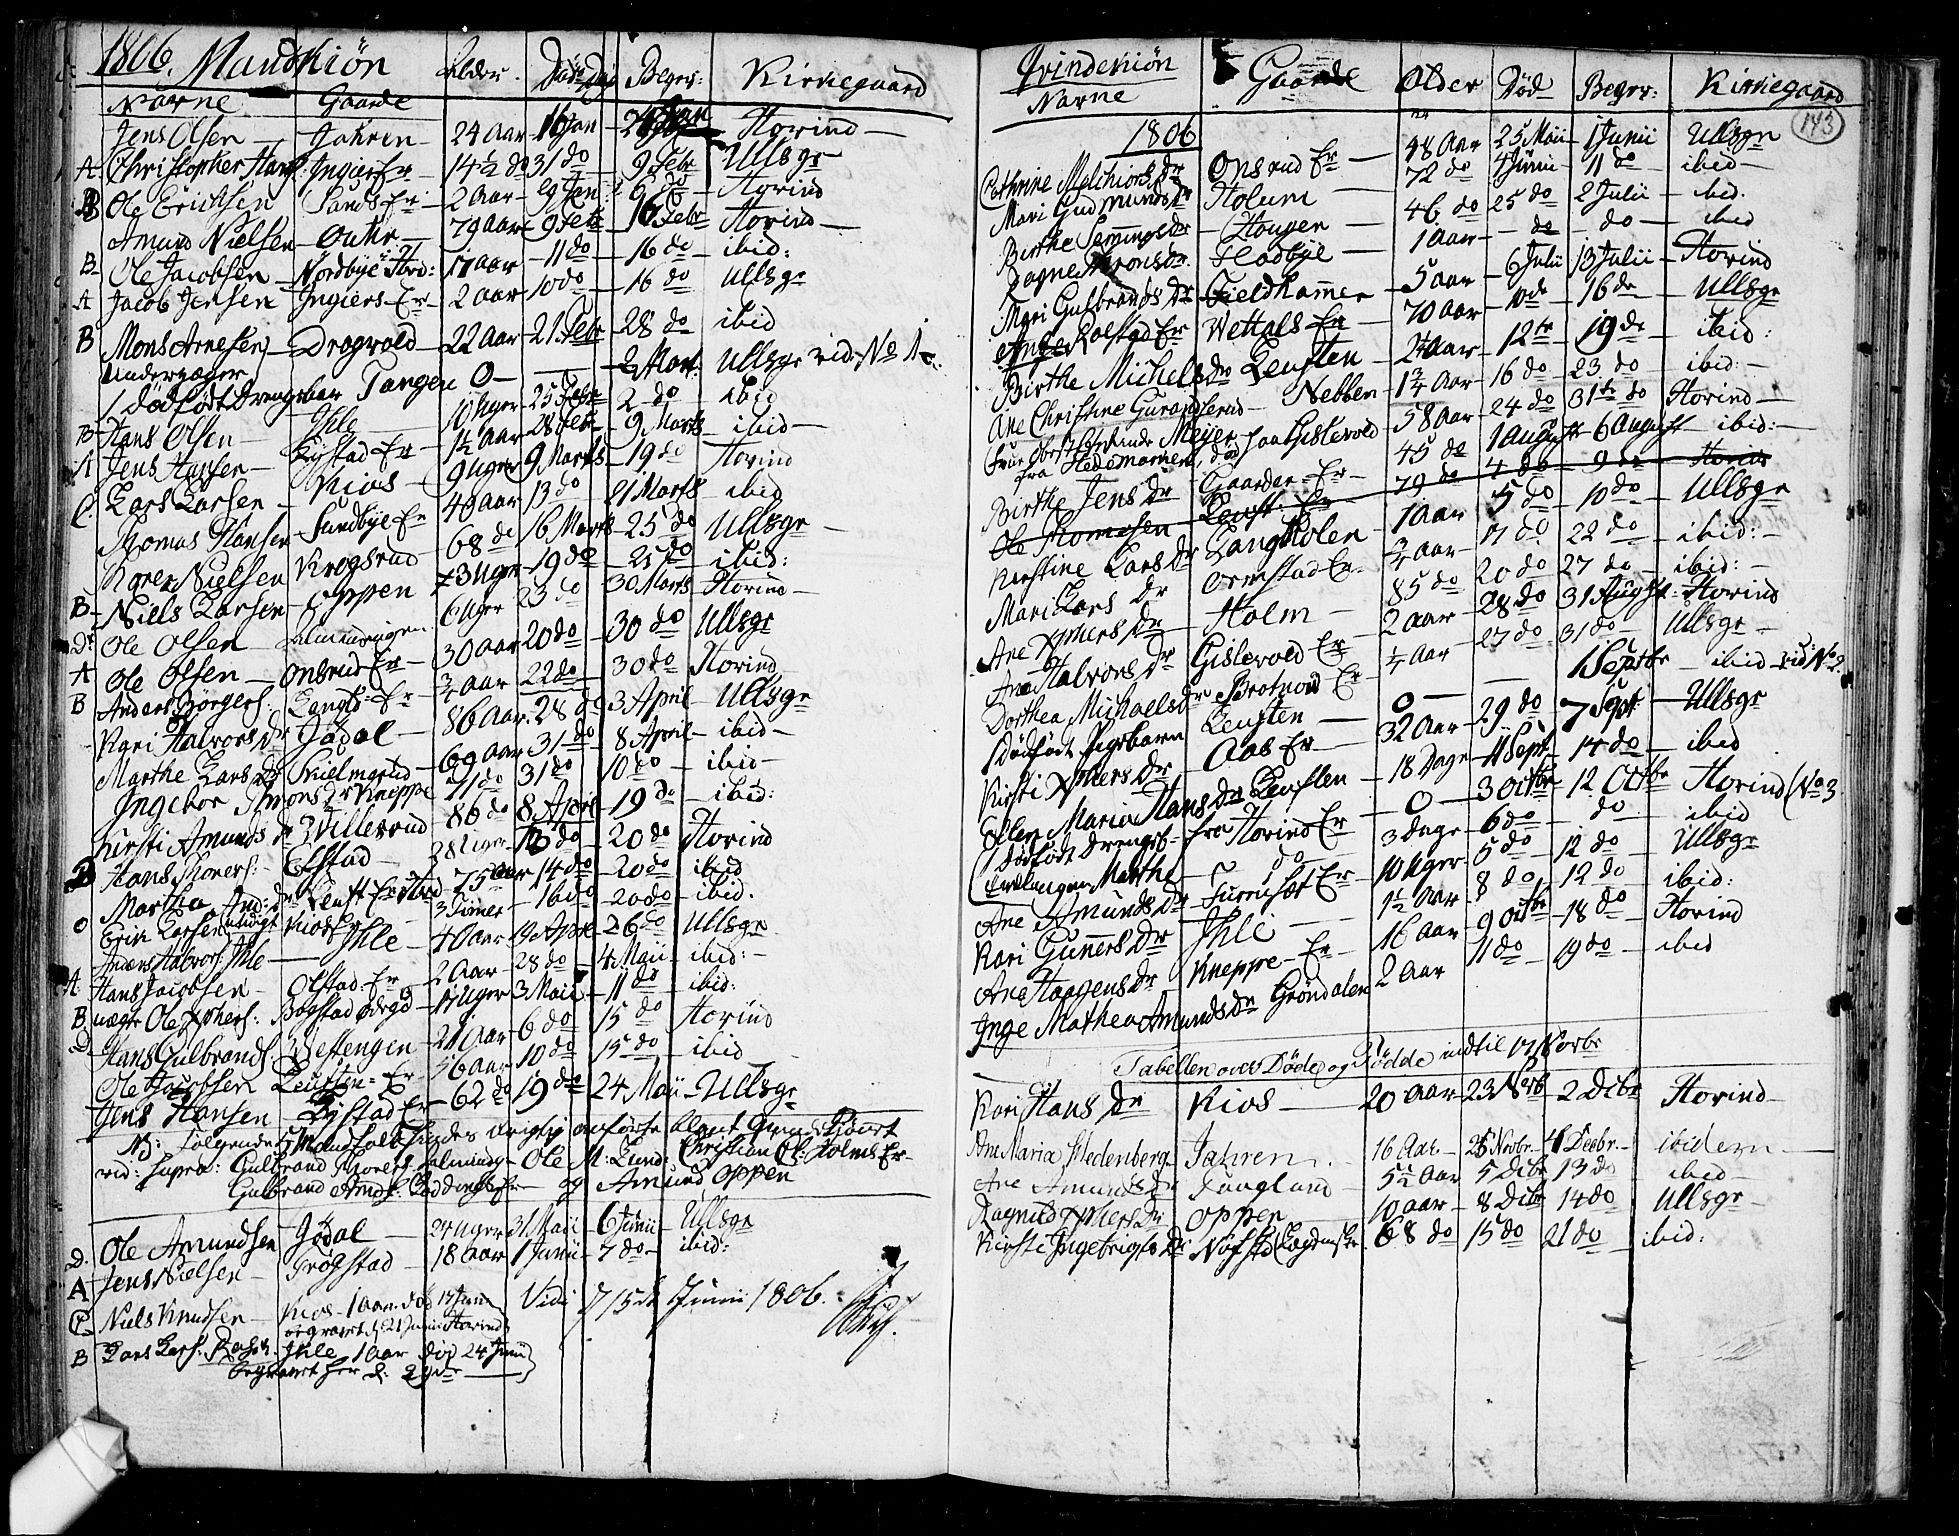 1806. Mandkiön Alder. Döds Dag Begr: Kirkegaard
Navne Gaarde
Jens Olsen — Jahren — 24 Aar — 16 Jan — Hovind —
A Christopher Hans: Ingier Er — 14½ do 31 do — 9 Febr Ullsgr
B Ole Erichsen Sands Er — 2 Aar — 29 Jan: 6 do — Hovind
Amund Nielsen — 79 Aar — 9 Febr — 16 Febr Hovind —
B Ole Jacobsen — Nordbye Hovd: 17 Aar — 11 do — 16 do — ibid:
A Jacob Jensen Ingiers Er — 2 Aar — 10 do — 16 do Ullsgr
B Mons Arnesen — Dragvold — 22 Aar — 21 Febr — 28 do ibid
Undergager
1 dödfödt Drengebar Tangen 0 — — 2 Mart: Ullsgr vid: No 1
B Hans Olsen — Ihle — 10 Uger — 25 Febr 2 do — ibid
A Jens Hansen — Bystad Er — 1½ Aar — 28 Febr — 9 Marts — ibid —
C. Lars Larsen — Kios — 9 Uger 9 Marts — 19 do Hovind
Thomas Hansen Sundbye Er 40 Aar 13 do 21 Marts — ibid
Thorer Nielsen Krogsrud 68 do 16 Marts 25 do Ullsgr —
B Niels Larsen — Oppen 23 Uger — 19 do — 25 do ibid:
D. Ole Olsen 6 Uger 23 do 30 Marts Hovind —
A Ole Olsen — Onsrud Er — 30 Aar 20 do — 30 do Ullsgr
B Anders Börgers: Er — ¾ Aar 22 do — 30 do Hovind
Kari Halvors Dr Jödal — 86 Aar. 28 do 3 April — Ullsgr
Marthe Lars Dr 69 Aar 31 do 8 April — ibid —
Ingebor Simons Dr Kneppe 71 do 31 do 10 do — ibid —
Kirsti Amunds Dr Villerud 86 do 8 April — 19 do — ibid:
B Hans Thorers: Olstad — 28 Uger 13 do — 20 do Hovind
Martha And: Dr Er 75 Aar 14 do — 20 do ibid
O Erik Larsen Kios 3 Timer — 16 do — 20 do — ibid.
Anders Halvors: Ihle — Ihle — 40 Aar 19 April — 26 do Ullsgr
A: Hans Jacobsen — Olstad Er — 2 Aar — 28 do — 4 Maii — ibid: —
B Ole Xphers: Bogstad Ödegd — 17 Uger 3 Maii — 11 do — ibid:
D Hans Gulbrands: Vestengen — 21 Aar — 6 do 15 do Hovind
Ole Jacobsen Leusten Er 56 Aar 10 do 15 do — ibid
Jens Hansen — Bystad Er — 62 do 19 do — 24 Maii — Ullsgr
NB: Følgende 5 Mandfolk findes urigtig anførte blant Qvinde Kiönnet
vid: supra: Gulbrand Thorers: Ole M: Lund: Christian Ol: Holms Er —
Gulbrand Amds: og Amund Oppen
D. Ole Amundsen Jödal — 24 Uger 31 Maii — 6 Junii — Ullsgr
A Jens Nielsen — Trögstad — 18 Aar 1 Junii — 7 do — ibid:
C Niels Knudsen — Kios — 1 Aar. död 17 Junii Vidi d 15de Junii 1806.
begravet d: 21 Junii Hovind
B Lars Lars: Ihle 1 Aar död 24 Junii
begravet her d: 29de —
Qvindekiön Gaarde Alder Död Begr: Kirkegaard
Navne
143
1806
Cathrine Melchiors Dr Onsrud Er — 48 Aar 25 Maii — 1 Junii Ullsgr
Mari Gudmunds Dr Holum — 72 do 4 Junii — 11 do — ibid —
Birthe Sannings Dr — Haugen — 46 do 25 do — 2 Julii — ibid.
Dagne Arons Dr. Hadbye — 1 Aar — do — do — ibid
Mari Gulbrands Dr — Fieldhamer — 5 Aar — 6 Julii — 13 Julii — Hovind
Ange Rolstad Er Vettals Er — 70 Aar — 10 do — 16 do — Ullsgr
Birthe Michels Dr Leusten — 24 Aar — 12te — 19 do — ibid:
Ane Christine Nebben — 1¾ Aar — 16 do — 23 do — ibid: —
Frue Oberst Meijer — 58 Aar — 24 do 31te do Hovind —
fra Hedemarken, död paa Gislevold
Birthe Jens Dr — Gaarder Er — 45 do 1 August — 6 August — ibid: —
Ole Thomesen — Er 79 do 4 do — 9 do — Hovind
Kirstine Lars Dr Langholen — 1 Aar 5 do — 10 do — Ullsgr
Mari Lars Dr Ormstad Er — ¾ Aar — 17 do 22 do — ibid: —
Ane Xphers Dr — Holm — 85 do 20 do 27 do — ibid: —
Ane Halvors Dr Gislevold Er 2 Aar — 28 do 31 August: Hovind
Dorthea Michaels Dr Brotnoed Er — ¼ Aar — 27 do 31 do — Ullsgr —
1 Dödfödt Pigebarn Leusten — 0 — — 1 Septbr — ibid vid: No 2
Kirsti Xphers Dr — Aas Er — 32 Aar — 29 do 7 Sept — Ullsgr
Ellen Maria Hans Dr Leusten — 18 Dage — 11 Sept — 14 do — ibid
1 dödfödt Drengeb: fra Hovind Er — 0 — 3 Octbr — 12 Octbr Hovind (No 3
Marthe — do 3 dage — 6 do — do — ibid
Ane Amunds Dr — Furruset Er — 10 Uger — 5 do — 12 do — Ullsgr
Kari Guners Dr — Ihle — 1½ Aar — 8 do — 12 do — ibid:
Ane Haagens Dr Kneppe — Er — 16 Aar — 9 Octbr — 18 do — Hovind
Inge Mathea Amunds Dr Gröndalen 2 Aar 11 do — 19 do — ibid
Tabellen over Döde og Födde indtil 17 Novbr
Kari Hans Dr Kios — 20 Aar — 23 Novb — 2 Decbr Hovind —
Ane Maria Hedenberg — Jahren. 16 Aar — 25 Novbr. 4 Decbr. — ibidem —
Ane Amunds Dr Laugland — 5½ Aar 5 Decbr 13 do ibid —
Ragnild Xphers Dr Oppen 10 Aar — 8 Decbr 14 do Ullsgr —
Kirsti Ingebrigts Dr 68 do 15 do 21 do — ibid: